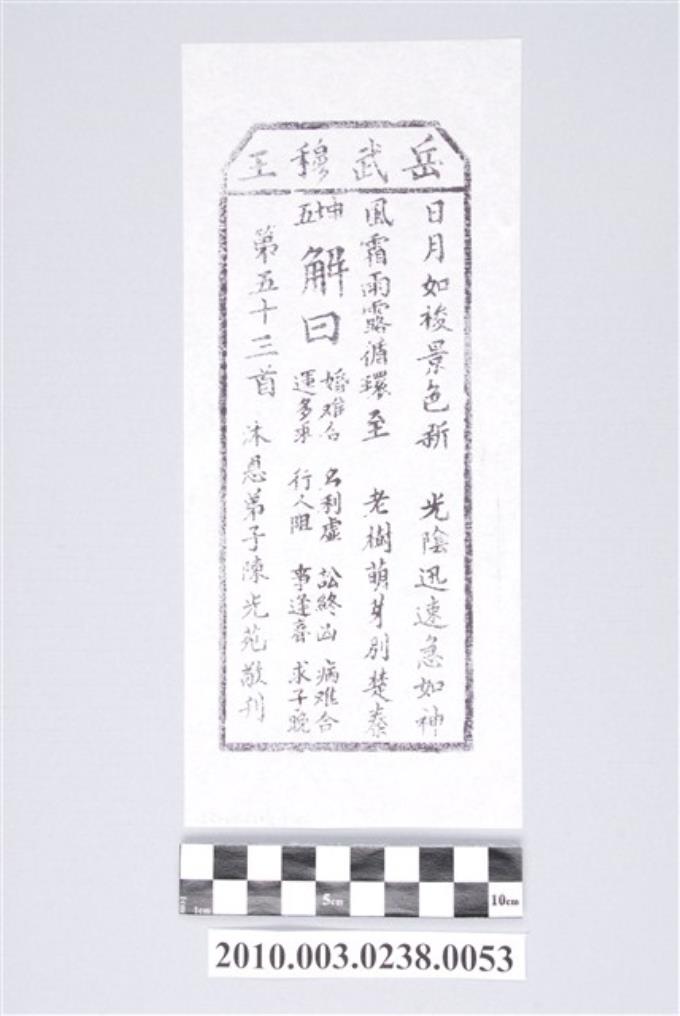 岳武穆王
日月如梭景色新 光陰迅速急如神
風霜雨露循環至 老樹萌芽別楚秦
坤五
解曰
婚难合 名利虛 訟終凶 病难合
運多來 行人阻 事逢齋 求子晚
第五十三首 沐恩弟子陳光苑敬刊
1cm 5cm 10cm
2010.003.0238.0053